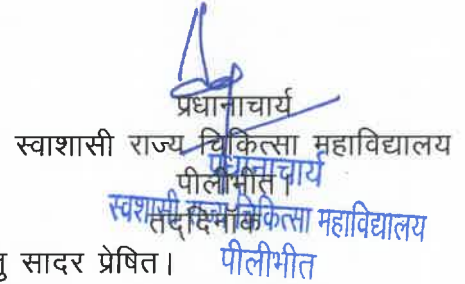 प्रधानाचार्य
स्वाशासी राज्य चिकित्सा महाविद्यालय
पीलीभीत।
तद्दिनाँक
प्रधानाचार्य
स्वशासी राज्य चिकित्सा महाविद्यालय
पीलीभीत
सादर प्रेषित।